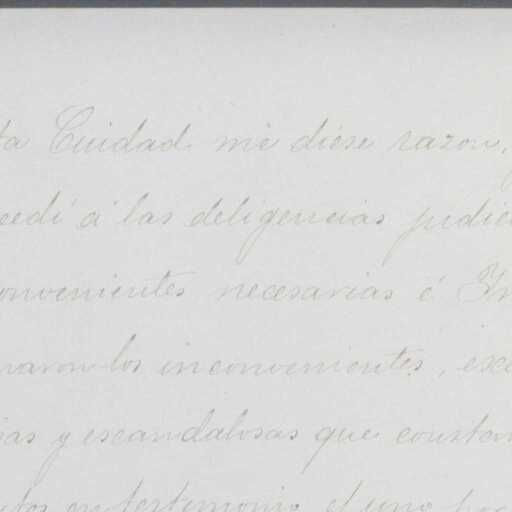 ta Cuidad me diese razon,
cedi á las deligencias judic
onvenientes necesarias é In
raron los inconvenientes, exc
ias y escandalosas que constan
tos en testimonio el uno por